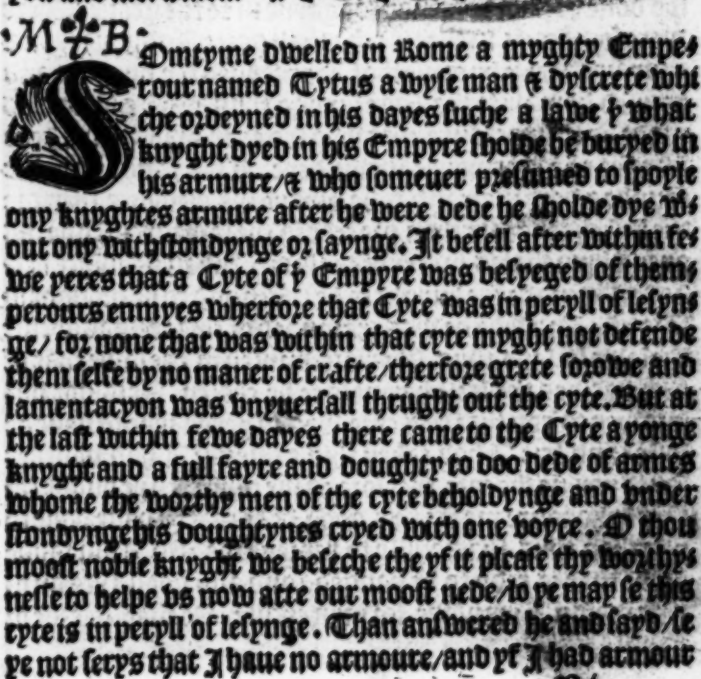 M B
Somtyme dwelled in Rome a myghty Empe⸗
rour named Tytus a wyse man & dyscrete whi
che ordeyned in his dayes suche a lawe þͭ what
knyght dyed in his Empyre sholde be buryed in
his armure/& who someuer presumed to spoyle
ony knyghtes armure after he were dede he sholde dye wͭ
out ony withstondynge or saynge. It befell after within fe⸗
we yeres that a Cyte of þͤ Empyre was besyeged of them⸗
perours enmyes wherfore that Cyte was in peryll of lesyn⸗
ge/ for none that was within that cyte myght not defende
them selfe by no maner of crafte/therfore grete sorowe and
lamentacyon was vnyuersall thrught out the cyte. But at
the last within fewe dayes there came to the Cyte a yonge
knyght and a full fayre and doughty to doo dede of armes
whome the worthy men of the cyte beholdynge and vnder
stondynge his doughtynes cryed with one voyce. O thou
moost noble knyght we beseche the yf it please thy worthy⸗
nesse to helpe vs now atte our moost nede/lo ye may se this
cyte is in peryll of lesynge. Than answered he and sayd/se
ye not serys that I haue no armoure/and yf I had armour